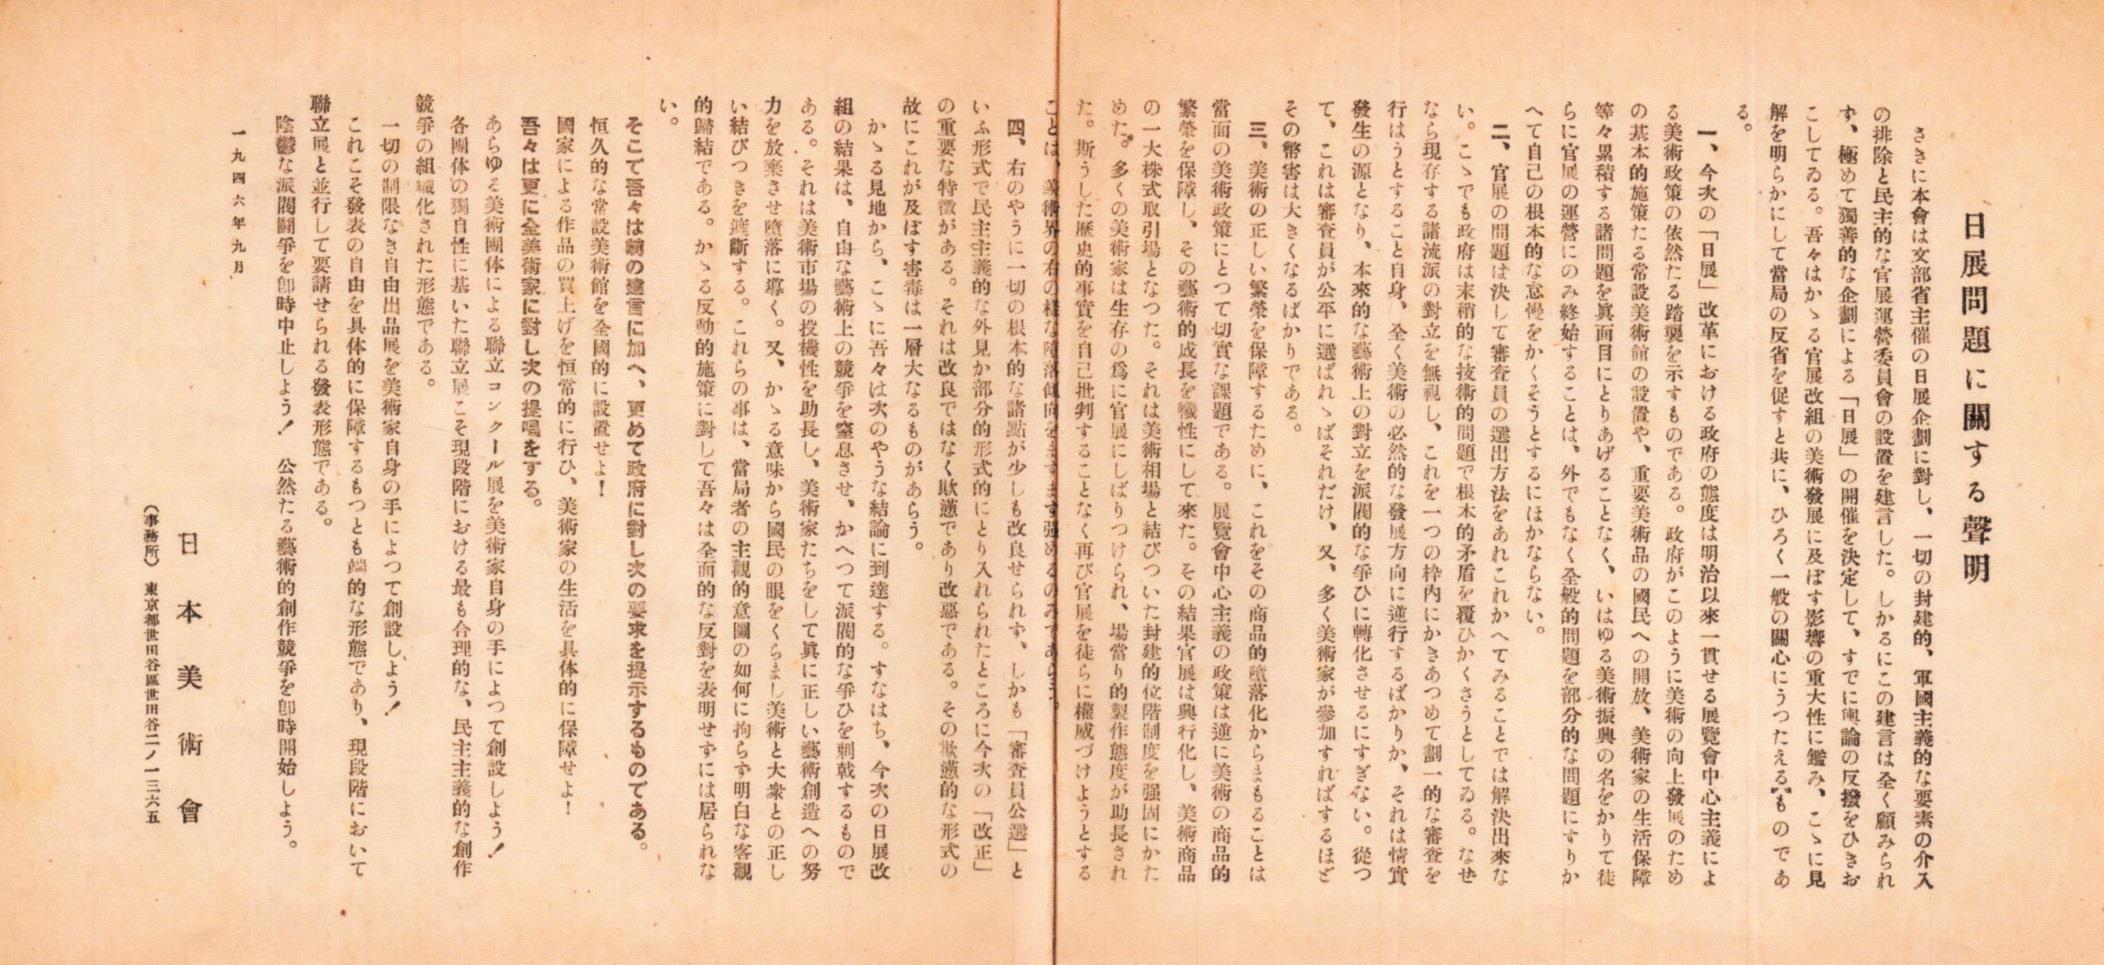 日展問題に關する聲明
さきに本會は文部省主催の日展企劃に對し、一切の封建的、軍國主義的な要素の介入
の排除と民主的な官展運營委員會の設置を建言した。しかるにこの建言は全く顧みられ
ず、極めて獨善的な企劃による「日展」の開催を決定して、すでに輿論の反撥をひきお
こしてゐる。吾々はかゝる官展改組の美術發展に及ぼす影響の重大性に鑑み、こゝに見
解を明らかにして當局の反省を促すと共に、ひろく一般の關心にうつたえるものであ
る。
一、今次の「日展」改革における政府の態度は明治以來一貫せる展覽會中心主義によ
る美術政策の依然たる踏襲を示すものである。政府がこのように美術の向上發展のため
の基本的施策たる常設美術館の設置や、重要美術品の國民への開放、美術家の生活保障
等々累積する諸問題を眞面目にとりあげることなく、いはゆる美術振興の名をかりて徒
らに官展の運營にのみ終始することは、外でもなく全般的問題を部分的な問題にすりか
へて自己の根本的な怠慢をかくそうとするにほかならない。
二、官展の問題は決して審査員の選出方法をあれこれかへてみることでは解決出來な
い。こゝでも政府は末稍的な技術的問題で根本的矛盾を覆ひかくさうとしてゐる。なぜ
なら現存する諸流派の對立を無視し、これを一つの枠内にかきあつめて劃一的な審査を
行はうとすること自身、全く美術の必然的な發展方向に逆行するばかりか、それは情實
發生の源となり、本來的な藝術上の對立を派閥的な爭ひに轉化させるにすぎない。從つ
て、これは審査員が公平に選ばれゝばそれだけ、又、多く美術家が參加すればするほど
その幣害は大きくなるばかりである。
三、美術の正しい繁榮を保障するために、これをその商品的墮落化からまもることは
當面の美術政策にとつて切實な課題である。展覽會中心主義の政策は逆に美術の商品的
繁榮を保障し、その藝術的成長を犧性にして來た。その結果官展は興行化し、美術商品
の一大株式取引場となつた。それは美術相場と結びついた封建的位階制度を强固にかた
めた。多くの美術家は生存の爲に官展にしばりつけられ、場當り的製作態度が助長され
た。斯うした歷史的事實を自己批判することなく再び官展を徒らに權威づけようとする
ことは、美術界の右の樣な墮落傾向をますます强めるのみであらう。
四、右のやうに一切の根本的な諸點が少しも改良せられず、しかも「審査員公選」と
いふ形式で民主主義的な外見が部分的形式的にとり入れられたところに今次の「改正」
の重要な特徵がある。それは改良ではなく欺瞞であり改惡である。その欺瞞的な形式の
故にこれが及ぼす害毒は一層大なるものがあらう。
かゝる見地から、こゝに吾々は次のやうな結論に到達する。すなはち、今次の日展改
組の結果は、自由な藝術上の競爭を窒息させ、かへつて派閥的な爭ひを刺戟するもので
ある。それは美術市場の投機性を助長し、美術家たちをして眞に正しい藝術創造への努
力を放棄させ墮落に導く。又、かゝる意味から國民の眼をくらまし美術と大衆との正し
い結びつきを遮斷する。これらの事は、當局者の主觀的意圖の如何に拘らず明白な客觀
的歸結である。かゝる反動的施策に對して吾々は全面的な反對を表明せずには居られな
い。
そこで吾々は前の建言に加へ、更めて政府に對し次の要求を提示するものである。
恒久的な常設美術館を全國的に設置せよ！
國家による作品の買上げを恒常的に行ひ、美術家の生活を具体的に保障せよ！
吾々は更に全美術家に對し次の提唱をする。
あらゆる美術團体による聯立コンクール展を美術家自身の手によつて創設しよう！
各團体の獨自性に基いた聯立展こそ現段階における最も合理的な、民主主義的な創作
競爭の組織化された形態である。
一切の制限なき自由出品展を美術家自身の手によつて創設しよう！
これこそ發表の自由を具体的に保障するもつとも端的な形態であり、現段階において
聯立展と並行して要請せられる發表形態である。
陰鬱な派閥鬪爭を卽時中止しよう！　公然たる藝術的創作競爭を卽時開始しよう。
一九四六年九月
日本美術會
（事務所）　東京都世田谷區世田谷二ノ一三六五